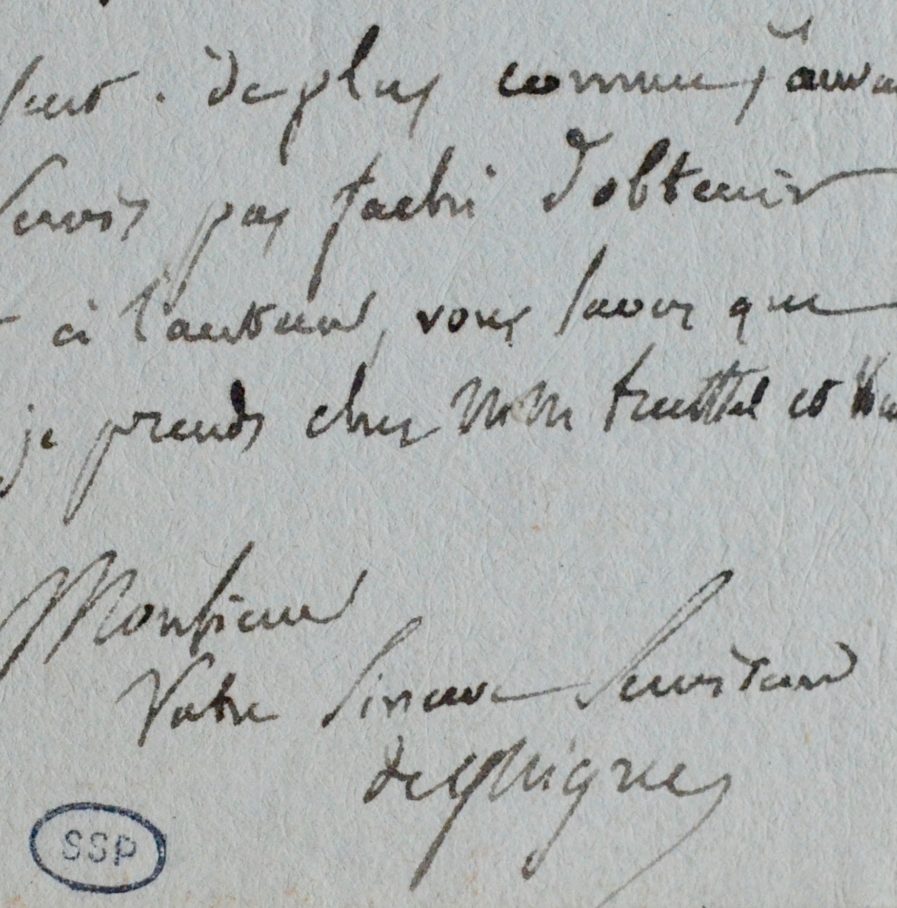 De plus comme j'aurai
serois pas faché d'obtenir
à l'auteur, vous savez que
je prends chez MM treuttel et Wu
Monsieur
Votre sincere serviteur
deGuignes
SSP